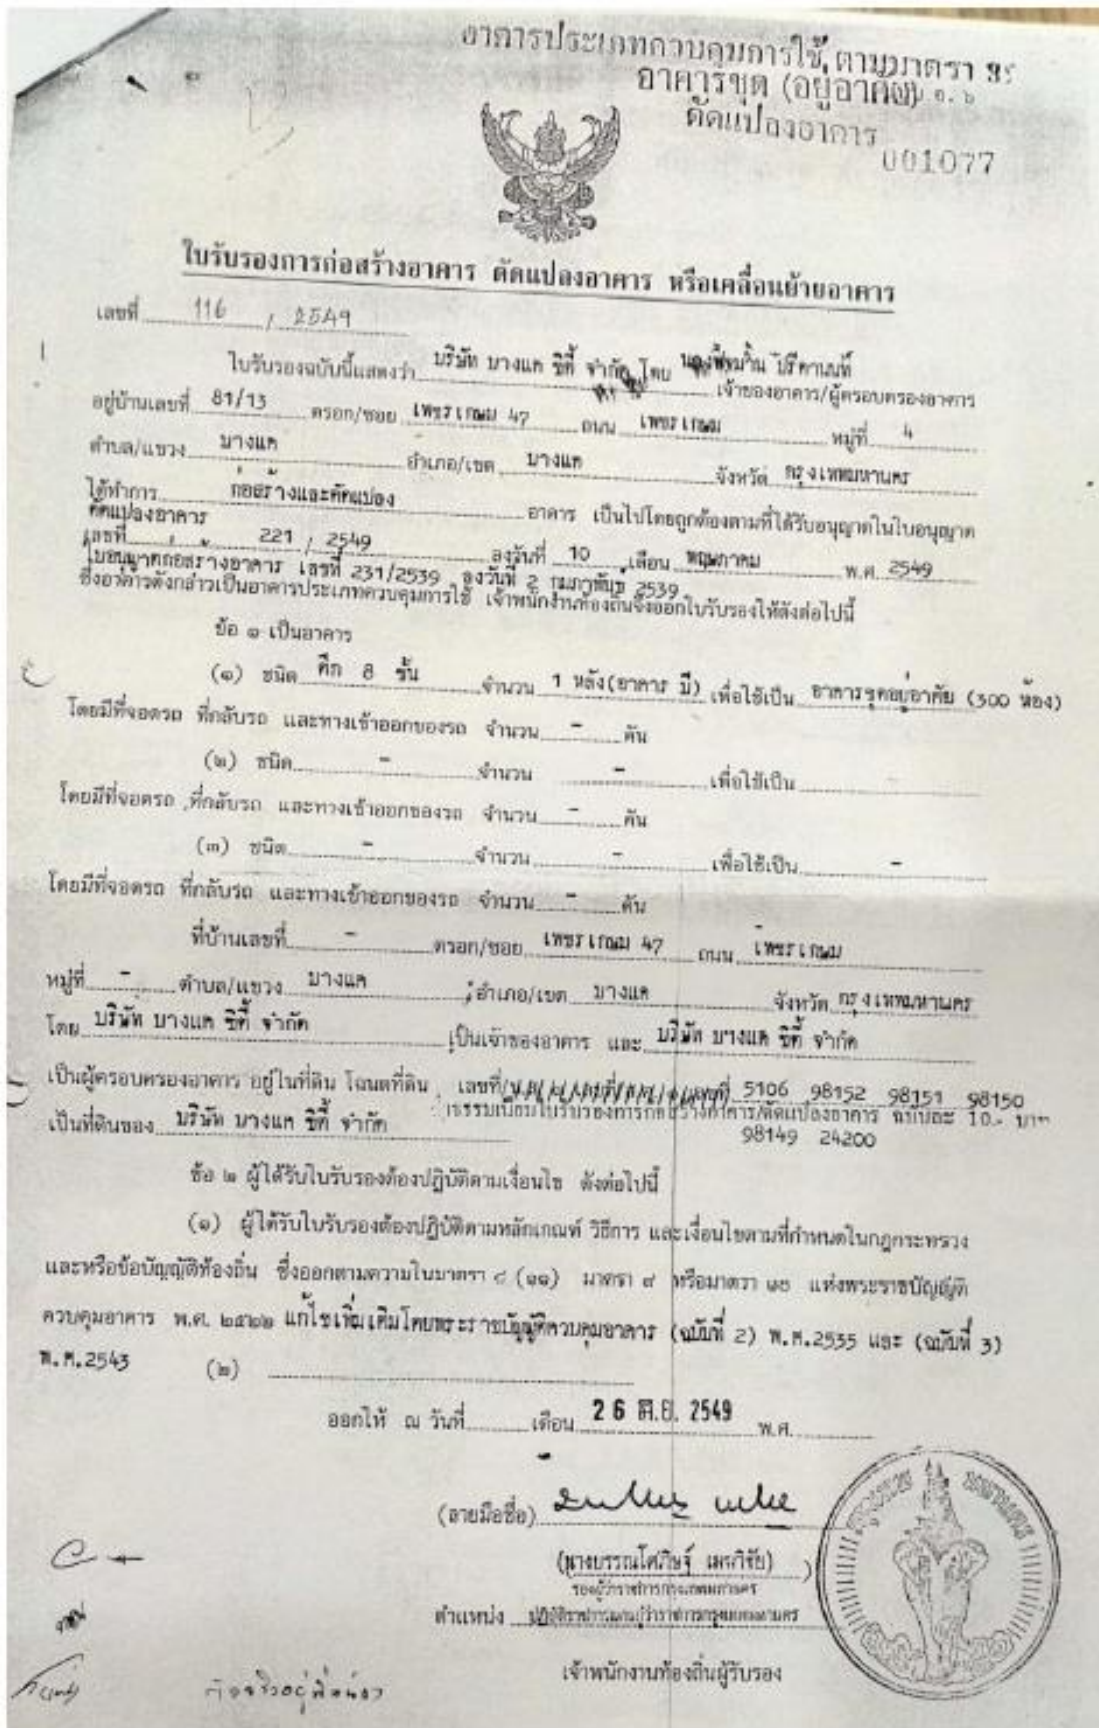 อาคารประเภทควบคุมการใช้ ตามมาตรา
อาคารชุด (อยู่อาศัย) อ. ๖
ดัดแปลงอาคาร
001077
ใบรับรองการก่อสร้างอาคาร ดัดแปลงอาคาร หรือเคลื่อนย้ายอาคาร
เลขที่ 116 / 2549
ใบรับรองฉบับนี้แสดงว่า บริษัท บางแค ซิตี้ จำกัด โดย ปรีดานนท์
เจ้าของอาคาร/ผู้ครอบครองอาคาร
อยู่บ้านเลขที่ 81/13 ตรอก/ซอย เพชรเกษม 47 ถนน เพชรเกษม หมู่ที่ 4
ตำบล/แขวง บางแค อำเภอ/เขต บางแค จังหวัด กรุงเทพมหานคร
ได้ทำการ ก่อสร้างและดัดแปลง อาคาร เป็นไปโดยถูกต้องตามที่ได้รับอนุญาตในใบอนุญาต
ดัดแปลงอาคาร
เลขที่ 221 / 2549 ลงวันที่ 10 เดือน พฤษภาคม พ.ศ. 2549
ใบอนุญาตก่อสร้างอาคาร เลขที่ 231/2539 ลงวันที่ 2 กุมภาพันธ์ 2539
ซึ่งอาคารดังกล่าวเป็นอาคารประเภทควบคุมการใช้ เจ้าพนักงานท้องถิ่นจึงออกใบรับรองให้ดังต่อไปนี้
ข้อ ๑ เป็นอาคาร
(๑) ชนิด ตึก 8 ชั้น จำนวน 1 หลัง(อาคาร บี) เพื่อใช้เป็น อาคารชุดอยู่อาศัย (300 ห้อง)
โดยมีที่จอดรถ ที่กลับรถ และทางเข้าออกของรถ จำนวน - คัน
(๒) ชนิด - จำนวน - เพื่อใช้เป็น -
โดยมีที่จอดรถ ที่กลับรถ และทางเข้าออกของรถ จำนวน - คัน
(๓) ชนิด - จำนวน - เพื่อใช้เป็น -
โดยมีที่จอดรถ ที่กลับรถ และทางเข้าออกของรถ จำนวน - คัน
ที่บ้านเลขที่ - ตรอก/ซอย เพชรเกษม 47 ถนน เพชรเกษม
หมู่ที่ - ตำบล/แขวง บางแค อำเภอ/เขต บางแค จังหวัด กรุงเทพมหานคร
โดย บริษัท บางแค ซิตี้ จำกัด เป็นเจ้าของอาคาร และ บริษัท บางแค ซิตี้ จำกัด
เป็นผู้ครอบครองอาคาร อยู่ในที่ดิน โฉนดที่ดิน เลขที่ 5106 98152 98151 98150
ธรรมเนียมใบรับรองการก่อสร้างอาคาร/ดัดแปลงอาคาร ฉบับละ 10.- บาท
เป็นที่ดินของ บริษัท บางแค ซิตี้ จำกัด 98149 24200
ข้อ ๒ ผู้ได้รับใบรับรองต้องปฏิบัติตามเงื่อนไข ดังต่อไปนี้
(๑) ผู้ได้รับใบรับรองต้องปฏิบัติตามหลักเกณฑ์ วิธีการ และเงื่อนไขตามที่กำหนดในกฎกระทรวง
และหรือข้อบัญญัติท้องถิ่น ซึ่งออกตามความในมาตรา ๘ (๑๑) มาตรา ๙ หรือมาตรา ๑๐ แห่งพระราชบัญญัติ
ควบคุมอาคาร พ.ศ. ๒๕๒๒ แก้ไขเพิ่มเติมโดยพระราชบัญญัติควบคุมอาคาร (ฉบับที่ 2) พ.ศ.2535 และ (ฉบับที่ 3)
พ.ศ.2543 (๒)
ออกให้ ณ วันที่ เดือน 26 มิ.ย. 2549 พ.ศ.
(ลายมือชื่อ)
รองผู้ว่าราชการกรุงเทพมหานคร
ตำแหน่ง ปฏิบัติราชการแทนผู้ว่าราชการกรุงเทพมหานคร
เจ้าพนักงานท้องถิ่นผู้รับรอง
กรุงเทพมหานคร